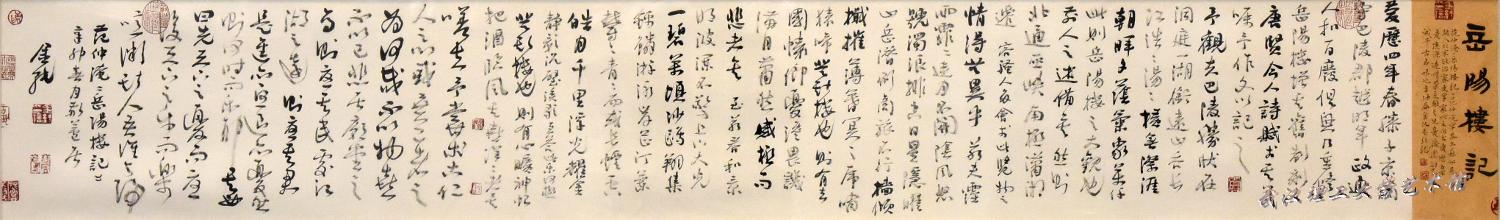 岳陽樓記
慶曆四年春滕子京謫
守巴陵郡越明年政通
人和百廢俱興乃重修
岳陽樓增其舊制刻
唐賢今人詩賦於其上
囑予作文以記之
予觀夫巴陵勝狀在
洞庭湖銜遠山吞長
江浩浩湯湯橫無際涯
朝暉夕陰氣象萬千
此則岳陽樓之大觀也
前人之述備矣然則
北通巫峽南極瀟湘
遷客騷人多會於此覽物之
情得無異乎若夫霪
雨霏霏連月不開陰風怒
號濁浪排空日星隱曜
山岳潛形商旅不行檣傾
楫摧薄暮冥冥虎嘯
猿啼登斯樓也則有去
國懷鄉憂讒畏譏
滿目蕭然感極而
悲者矣至若春和景
明波瀾不驚上下天光
一碧萬頃沙鷗翔集
錦鱗游泳岸芷汀蘭
郁郁青青而或長煙一空
皓月千里浮光耀金
靜影沉璧漁歌互答此樂何極
登斯樓也則有心曠神怡
把酒臨風其喜洋洋者矣
嗟夫予嘗求古仁
人之心或異二者之
為何哉不以物喜
不以己悲居廟堂之
高則憂其民處江
湖之遠則憂其君
是進亦憂退亦憂然
則何時而樂耶其必
曰先天下之憂而憂
後天下之樂而樂
噫微斯人吾誰與歸
范仲淹岳陽樓記
辛卯
武汉理工大学艺术馆